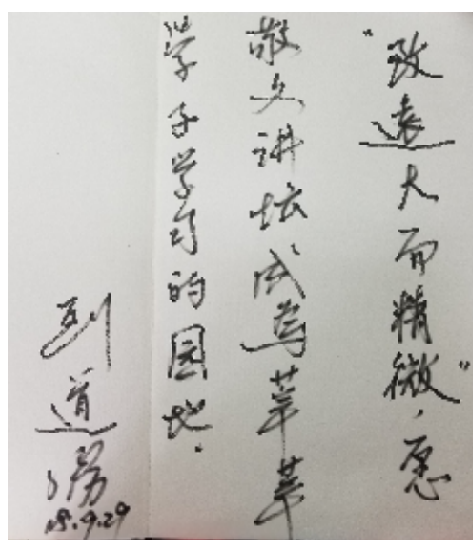 “致远大而精微”，愿
敬文讲坛成为莘莘
学子学习的园地.
刘道
18.9.29